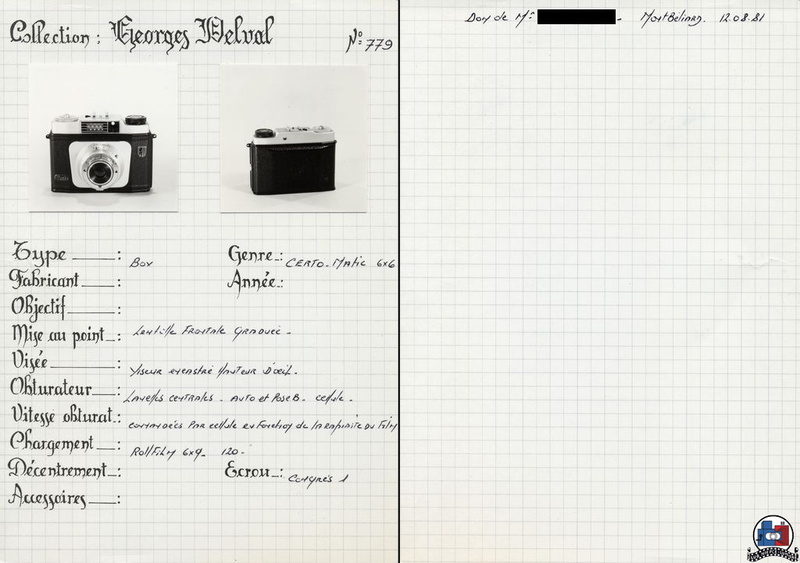 Collection : Georges Delval
No 779
Type : Box
Genre : CERTO-MATIC 6x6
Fabricant :
Année :
Objectif :
Mise au point : Lentille Frontale GRADUÉE -
Visée : Viseur encastré Hauteur D'oeil -
Obturateur : Lamelles centrales - AUTO et Pose B - cellule -
Vitesse obturat. : commandées PAR cellule en Fonction du Film
Chargement : RollFilm 6x9 - 120 -
Décentrement :
Ecrou : Congrès 1
Accessoires :
Don de Mr - Montbéliard. 12.08.81